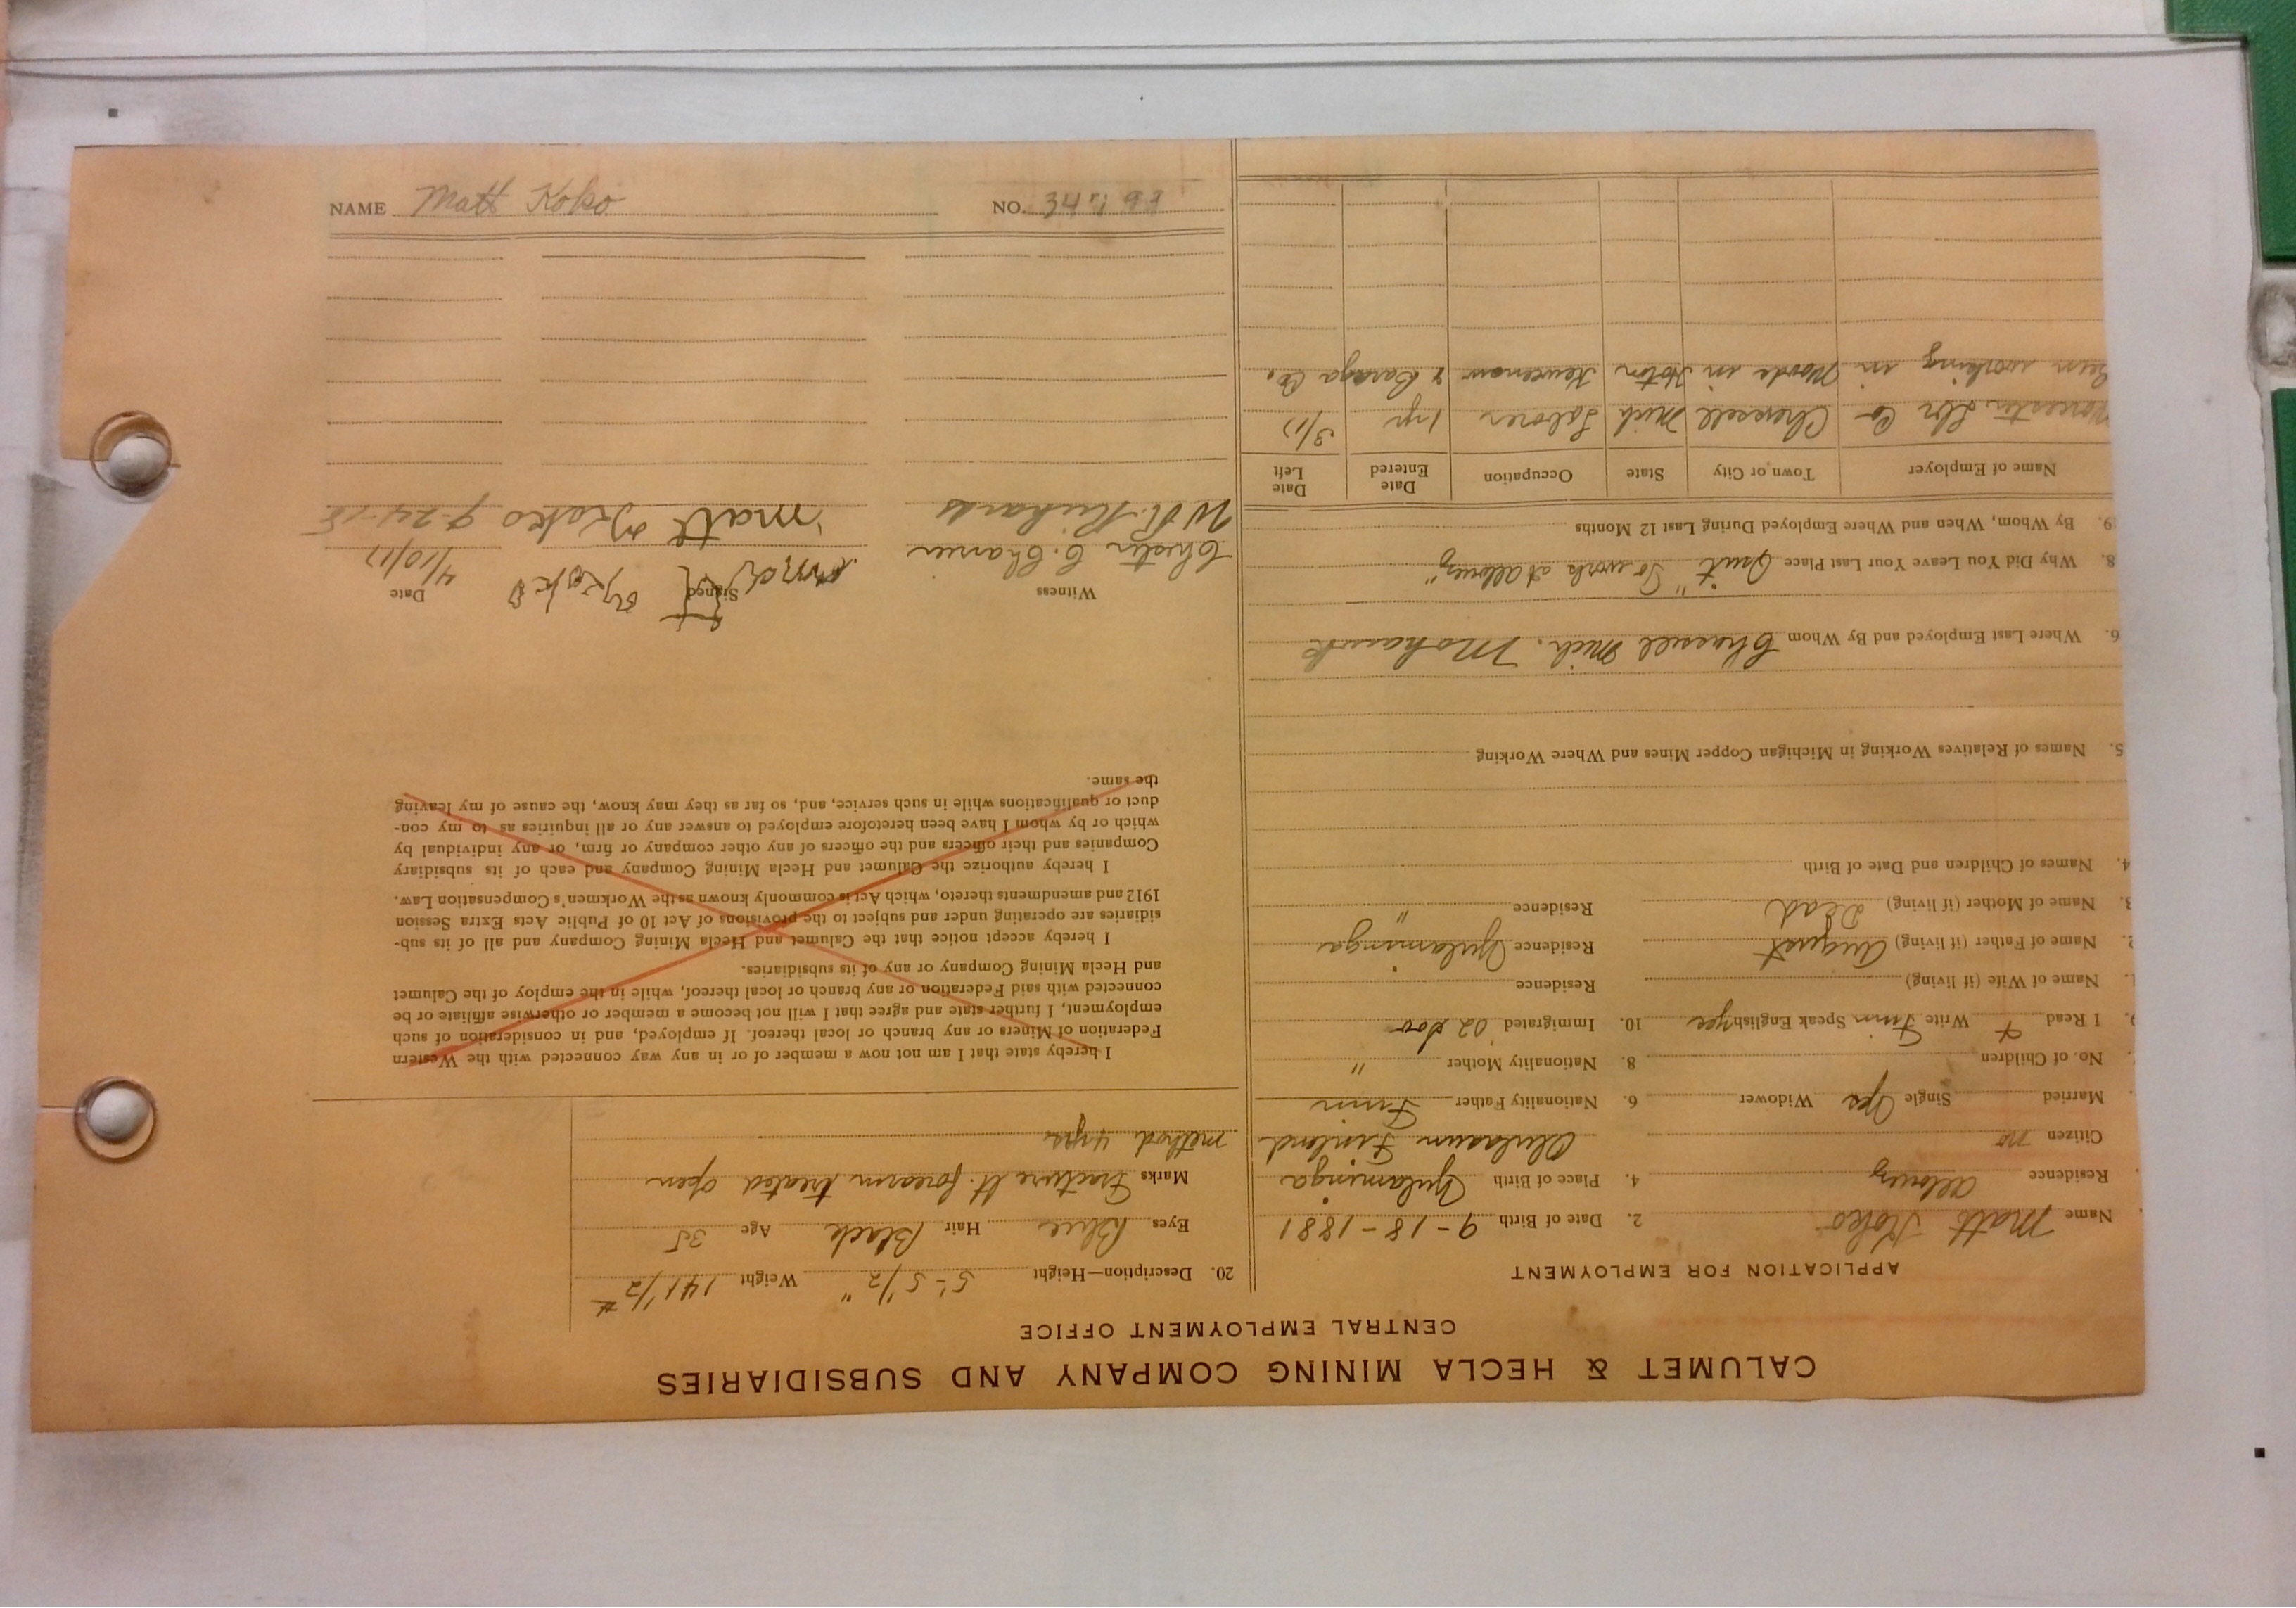 CALUMET & HECLA MINING COMPANY AND SUBSIDIARIES
CENTRAL EMPLOYMENT OFFICE
APPLICATION FOR EMPLOYMENT
Name Matt Koko 2. Date of Birth 9-18-1881
Residence Allouez 4. Place of Birth
Citizen no Finland
Married Single yes Widower 6. Nationality Father Finn
No. of Children 8. Nationality Mother "
I Read + Write Finn Speak English yes 10. Immigrated '02 Soo
Name of Wife (if living) Residence
Name of Father (if living) August Residence
3. Name of Mother (if living) Dead Residence "
4. Names of Children and Date of Birth
5. Names of Relatives Working in Michigan Copper Mines and Where Working
6. Where Last Employed and By Whom Chassell Mich. Mohawk
8. Why Did You Leave Your Last Place Quit "To work at Allouez"
9. By Whom, When and Where Employed During Last 12 Months
Name of Employer Town or City State Occupation Date Entered Date Left
Worcester Lbr Co Chassell Mich Laborer 1 yr 3/17
Been working in Woods in Hoton Keweenaw & Baraga Co.
20. Description—Height 5'-5 1/2" Weight 141 1/2 #
Eyes Blue Hair Black Age 35
Marks Fracture lt. forearm treated open
method 4 yrs
I hereby state that I am not now a member of or in any way connected with the Western
Federation of Miners or any branch or local thereof. If employed, and in consideration of such
employment, I further state and agree that I will not become a member or otherwise affiliate or be
connected with said Federation or any branch or local thereof, while in the employ of the Calumet
and Hecla Mining Company or any of its subsidiaries.
I hereby accept notice that the Calumet and Hecla Mining Company and all of its sub-
sidiaries are operating under and subject to the provisions of Act 10 of Public Acts Extra Session
1912 and amendments thereto, which Act is commonly known as the Workmen's Compensation Law.
I hereby authorize the Calumet and Hecla Mining Company and each of its subsidiary
Companies and their officers and the officers of any other company or firm, or any individual by
which or by whom I have been heretofore employed to answer any or all inquiries as to my con-
duct or qualifications while in such service, and, so far as they may know, the cause of my leaving
the same.
Witness Signed Date
Chester C. Koko 4/10/17
W R. Richards Matt Koko 9-24-18
NAME Matt Koko NO.